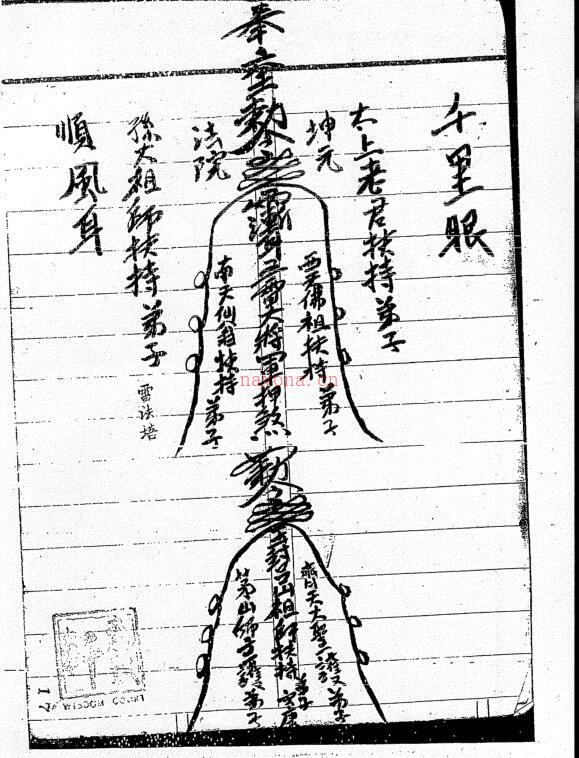 千里眼
太上老君扶持弟子
坤元
西天佛祖扶持弟子
奉 勅
三雷大將軍押煞
南天仙翁扶持弟子
法院
孫大祖師扶持弟子
雷法塔
順風耳
齊天大聖護弟子
勅
祖師扶持
弟子
護弟子
naqona.cn
WISDOM COURT